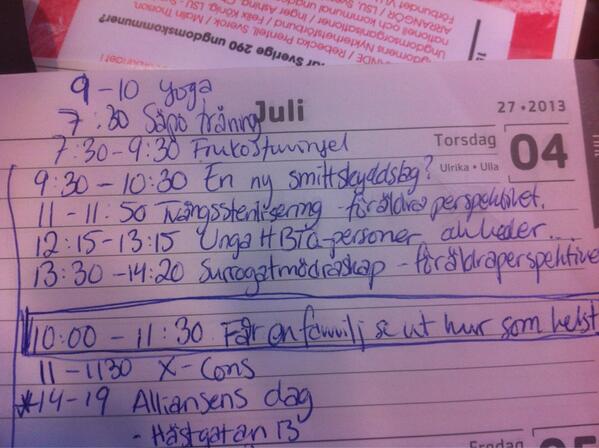 för Sverige 290 ungdomskommuner?
9-10 yoga
7:30 Säpo träning
Juli
27 • 2013
7:30-9:30 Frukostmingel
Torsdag
04
9:30-10:30 En ny smittskyddslag?
Ulrika • Ulla
11-11:50 Tvångssterilisering - föräldraperspektivet.
12:15-13:15 Unga HBTQ-personer och heder...
13:30-14:20 Surrogatmödraskap - föräldraperspektive
10:00-11:30 Får en familj se ut hur som helst
11-1130 X-Cons
*14-19 Alliansens dag
- Hästgatan 13
Fredag